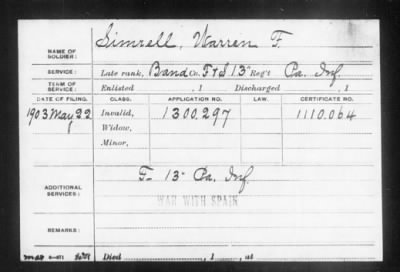 NAME OF SOLDIER: Simrell, Warren F.
SERVICE: Late rank, Band Co. F+S 13" Reg't Pa. Inf.
TERM OF SERVICE: Enlisted , 1 Discharged , 1
DATE OF FILING. CLASS. APPLICATION NO. LAW. CERTIFICATE NO.
1903 May 22 Invalid, 1300.297 1110.064
Widow,
Minor,
ADDITIONAL SERVICES: F- 13" Pa. Inf.
WAR WITH SPAIN
REMARKS:
Died , 1 , at